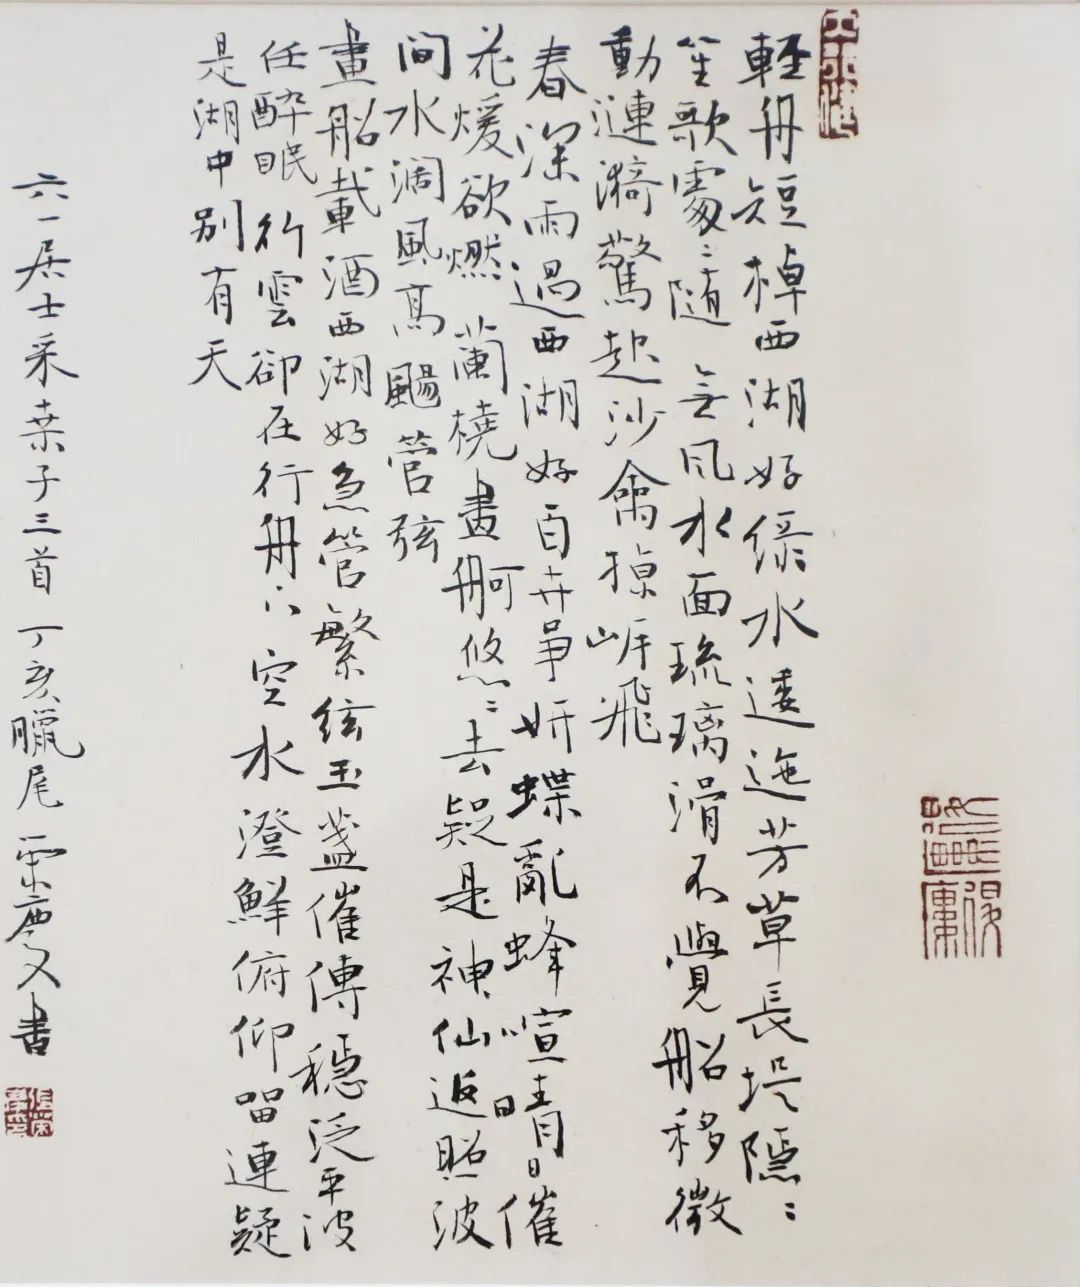 輕舟短棹西湖好綠水逶迤芳草長堤隱〻
笙歌處〻隨 無風水面琉璃滑不覺船移微
動漣漪驚起沙禽掠岸飛
春深雨過西湖好百卉爭妍蝶亂蜂喧晴日催
花煖欲燃 蘭橈畫舸悠〻去疑是神仙返照波
間水濶風高颺管弦
畫船載酒西湖好急管繁絃玉盞催傳穩泛平波
任醉眠 行雲卻在行舟下 空水澄鮮俯仰留連疑
是湖中別有天
六一居士采桑子三首 丁亥臘尾 書